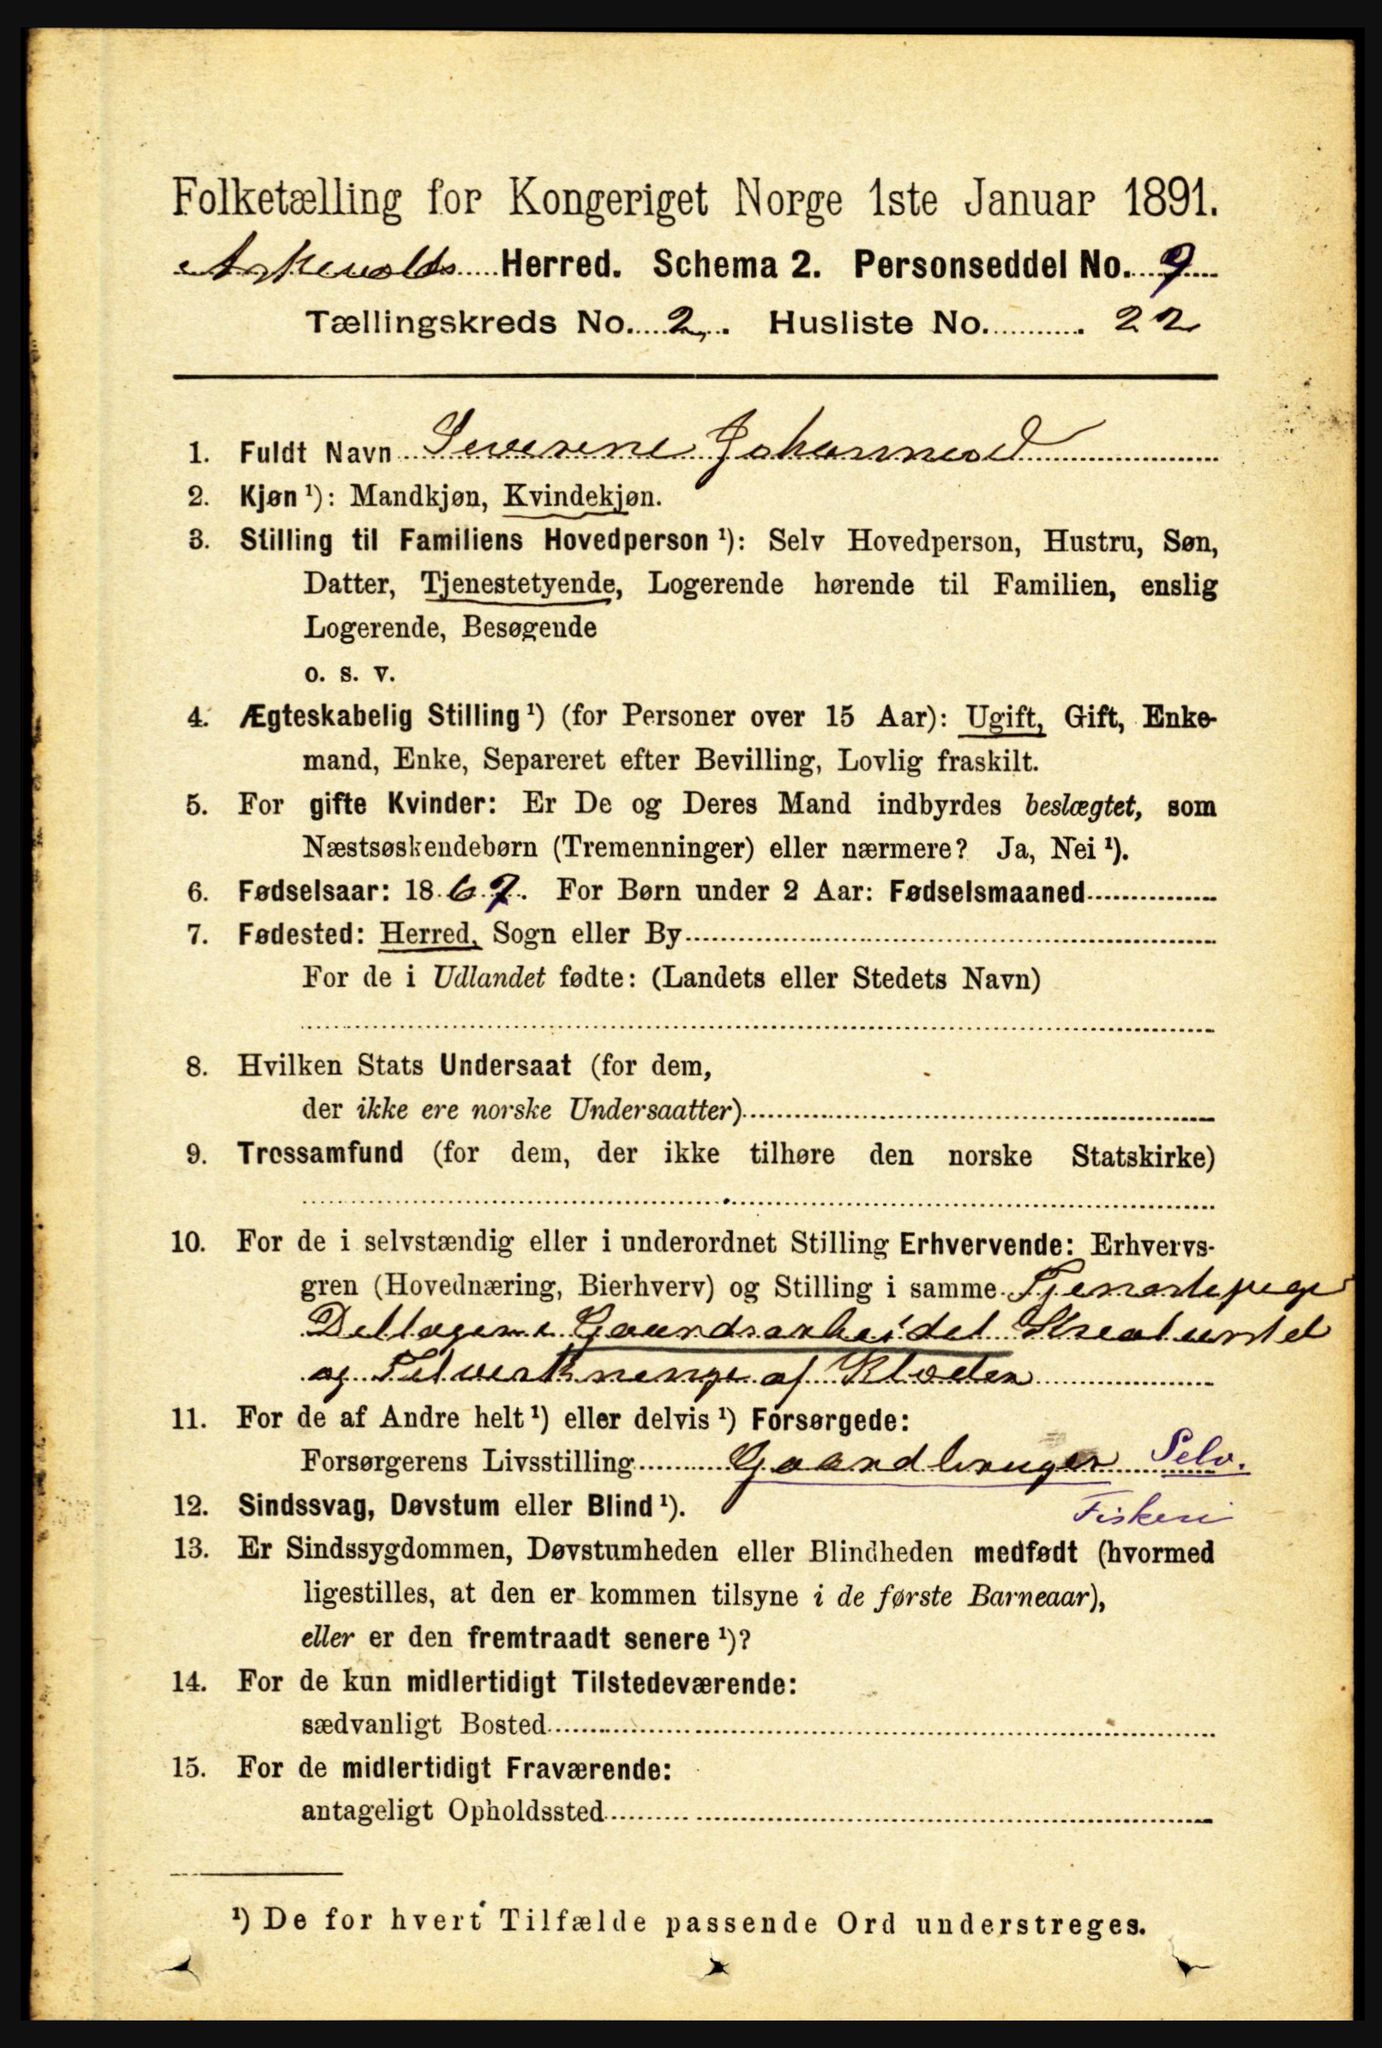 Folketælling for Kongeriget Norge 1ste Januar 1891.
Askevolds Herred. Schema 2. Personseddel No. 9
Tællingskreds No. 2. Husliste No. 22
1. Fuldt Navn Severine Johannesd
2. Kjøn ¹): Mandkjøn, Kvindekjøn.
3. Stilling til Familiens Hovedperson ¹): Selv Hovedperson, Hustru, Søn,
Datter, Tjenestetyende, Logerende hørende til Familien, enslig
Logerende, Besøgende
o. s. v.
4. Ægteskabelig Stilling ¹) (for Personer over 15 Aar): Ugift, Gift, Enke-
mand, Enke, Separeret efter Bevilling, Lovlig fraskilt.
5. For gifte Kvinder: Er De og Deres Mand indbyrdes beslægtet, som
Næstsøskendebørn (Tremenninger) eller nærmere? Ja, Nei ¹).
6. Fødselsaar: 1867. For Børn under 2 Aar: Fødselsmaaned
7. Fødested: Herred, Sogn eller By
For de i Udlandet fødte: (Landets eller Stedets Navn)
8. Hvilken Stats Undersaat (for dem,
der ikke ere norske Undersaatter)
9. Trossamfund (for dem, der ikke tilhøre den norske Statskirke)
10. For de i selvstændig eller i underordnet Stilling Erhvervende: Erhvervs-
gren (Hovednæring, Bierhverv) og Stilling i samme Tjenestepige
Deltager i Gaardsarbeidet Kreaturstel
og Tilvirkninge af Klæder
11. For de af Andre helt ¹) eller delvis ¹) Forsørgede:
Forsørgerens Livsstilling Gaardbruger Selv.
Fiskeri
12. Sindssvag, Døvstum eller Blind ¹).
13. Er Sindssygdommen, Døvstumheden eller Blindheden medfødt (hvormed
ligestilles, at den er kommen tilsyne i de første Barneaar),
eller er den fremtraadt senere ¹)?
14. For de kun midlertidigt Tilstedeværende:
sædvanligt Bosted
15. For de midlertidigt Fraværende:
antageligt Opholdssted
¹) De for hvert Tilfælde passende Ord understreges.